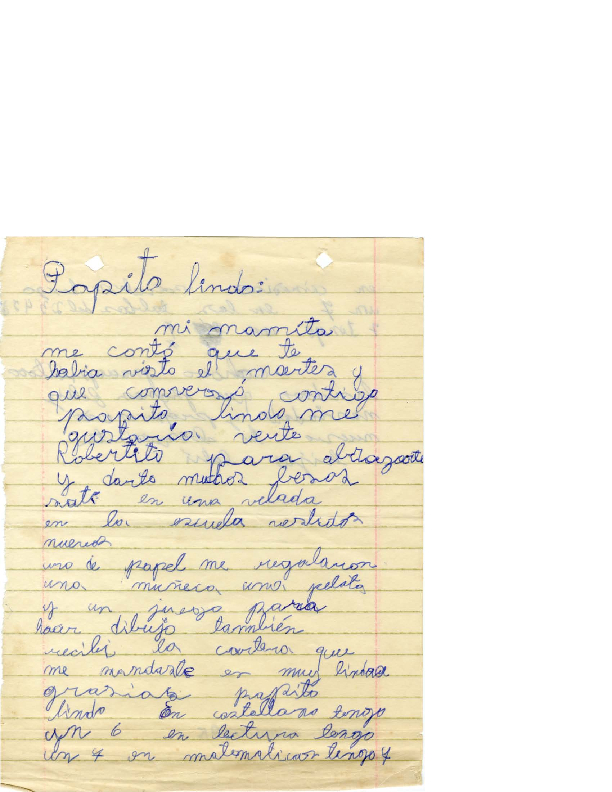 Papito lindo:
mi mamita
me contó que te
habia visto el martes y
que comversó contigo
papito lindo me
gustaria verte
Robertito para abrazarte
y darte muchos besos
sali en una velada
en la escuela vestidos
nuevos
uno de papel me regalaron
una muñeca una pelota
y un juego para
hacer dibujo también
recibi la cartera que
me mandaste es muy linda
grasias papito
lindo en castellano tengo
un 6 en lectura tengo
un 7 en matematicas tengo 7